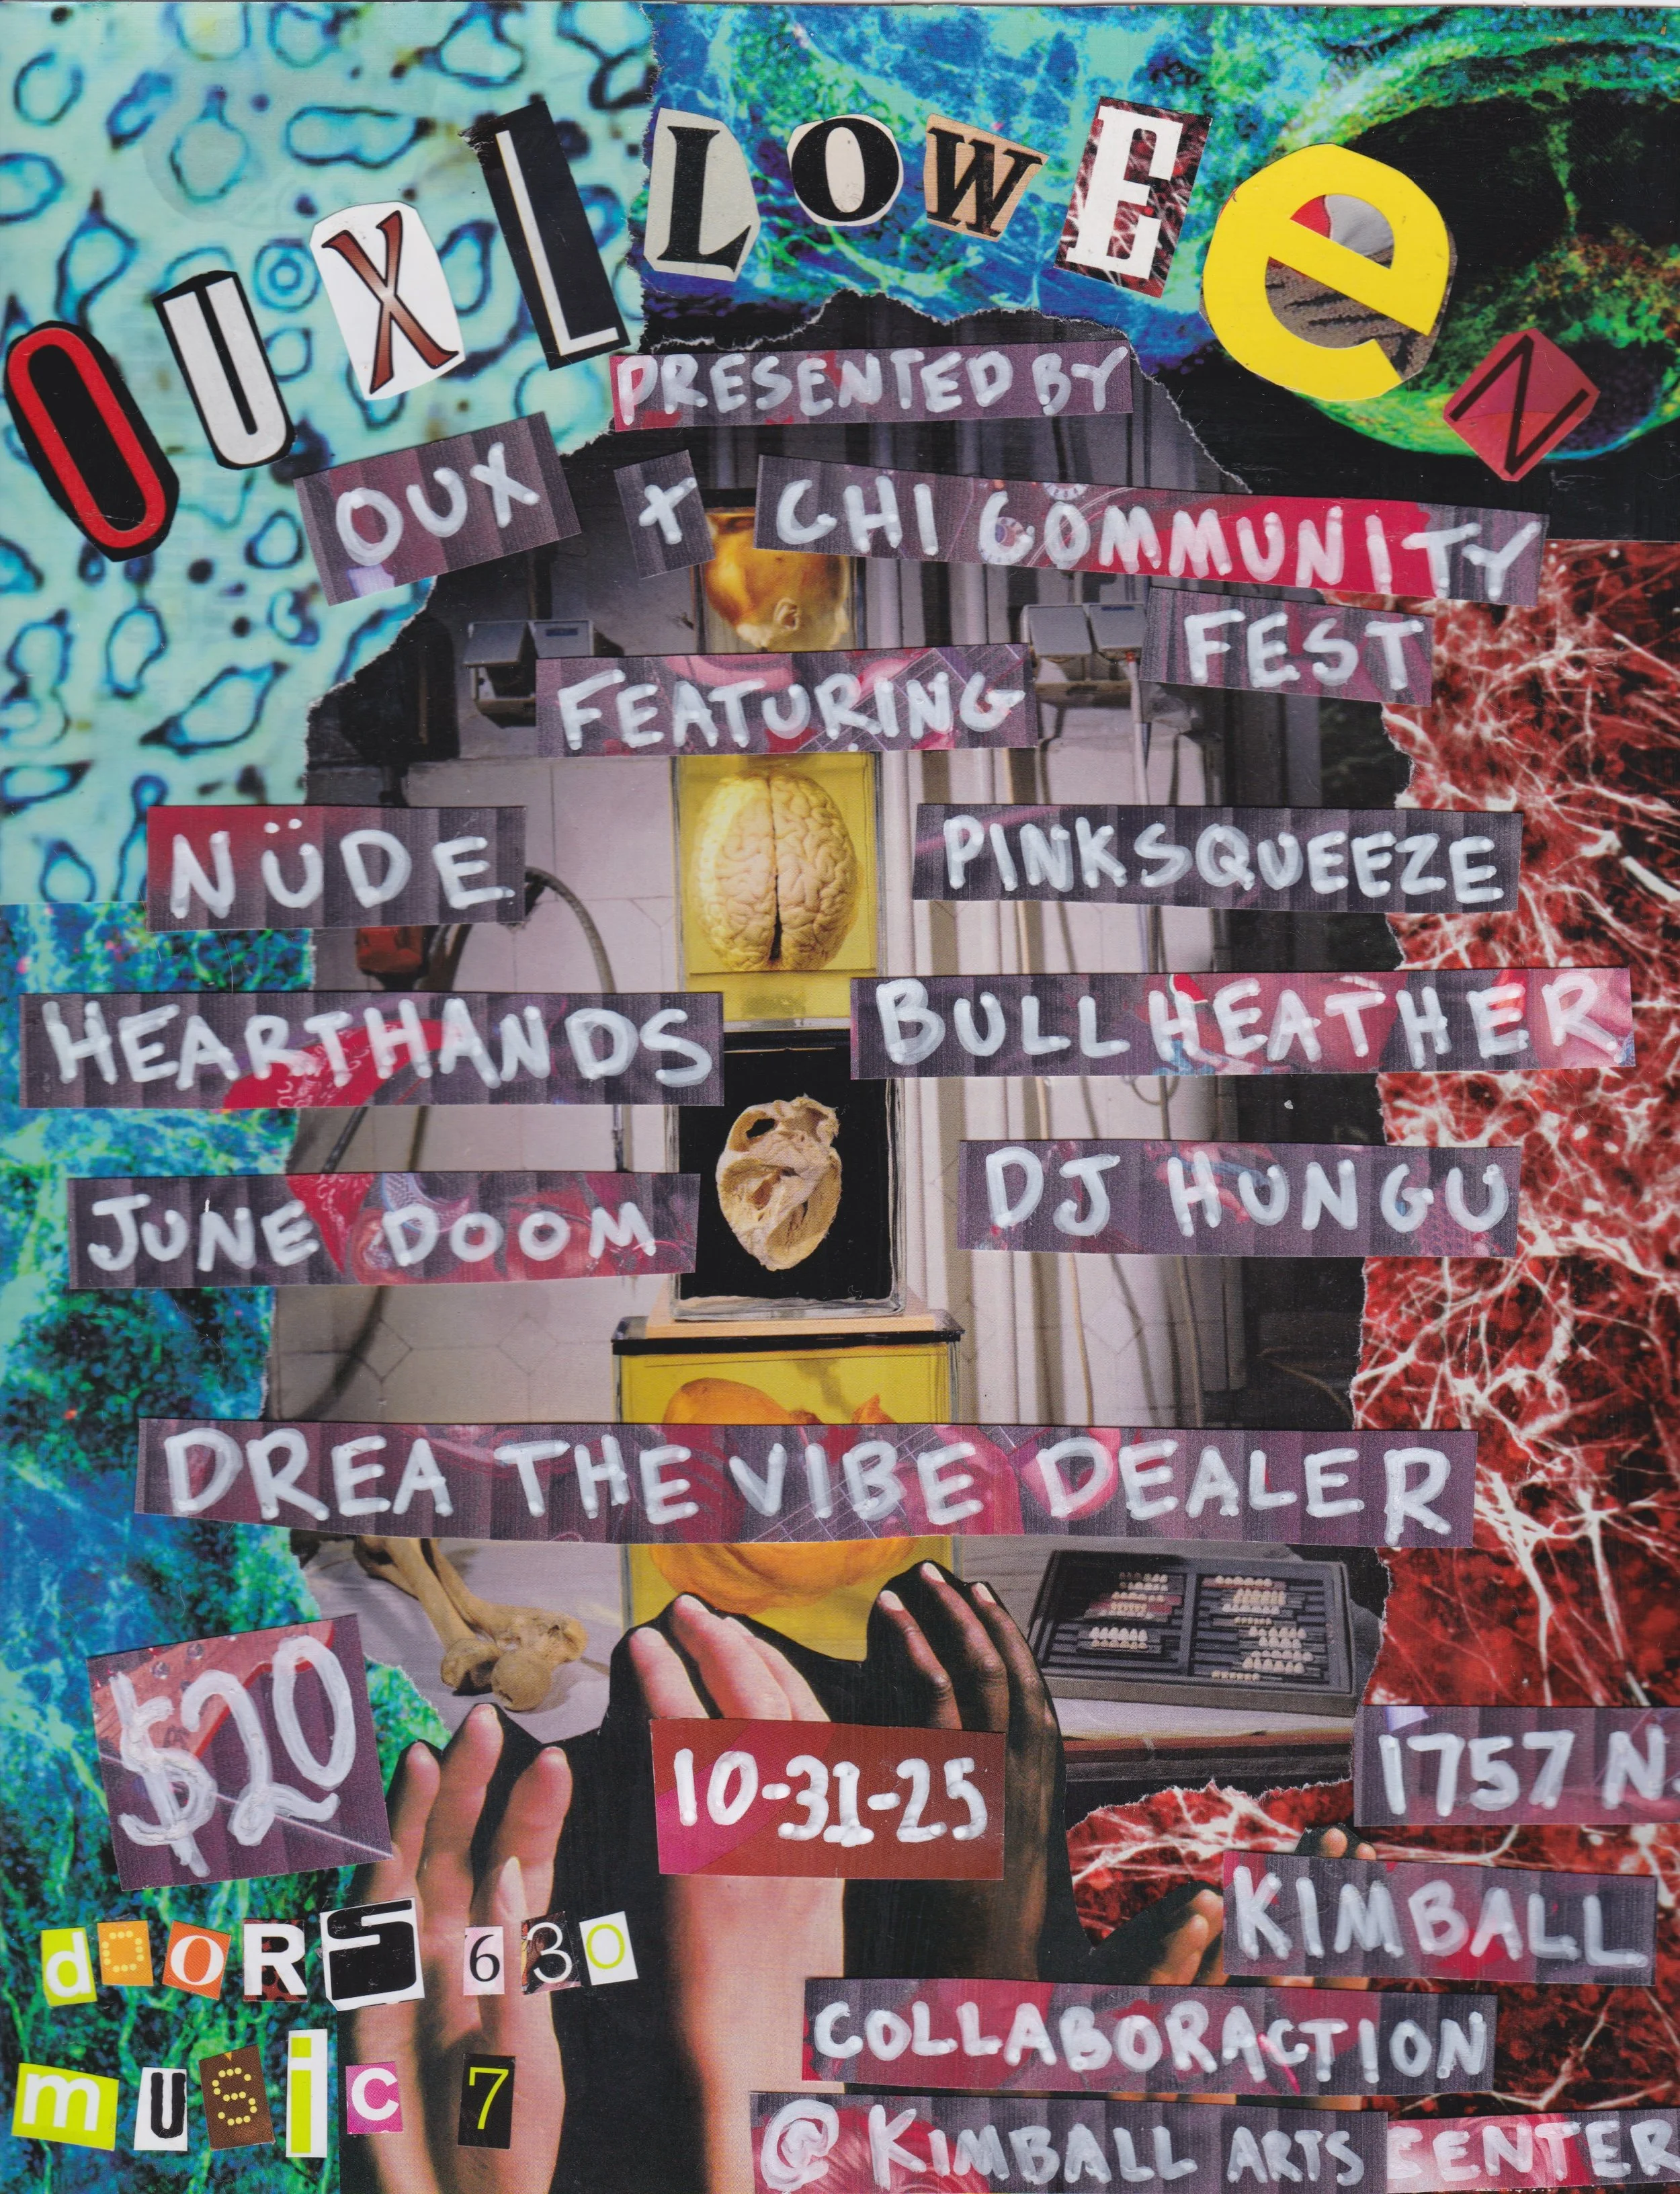 OUXLLOWEeN
PRESENTED BY
OUX + CHI COMMUNITY
FEST
FEATURING
NÜDE
PINKSQUEEZE
HEARTHANDS
BULL HEATHER
JUNE DOOM
DJ HUNGU
DREA THE VIBE DEALER
$20
10-31-25
1757 N
KIMBALL
dOORS 630
COLLABORACTION
mUSic 7
@ KIMBALL ARTS CENTER